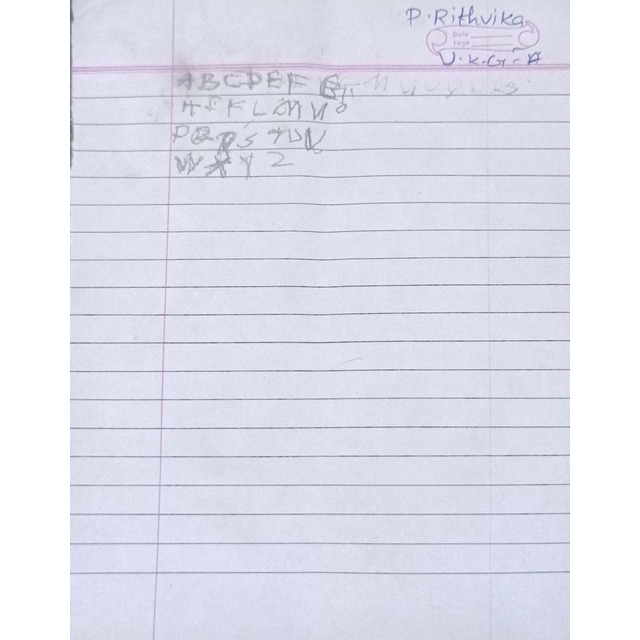 P. Rithvika
Date
Page
U.K.G-A
A B C D E F G
K L M N O
P Q R S U V
W X Y Z